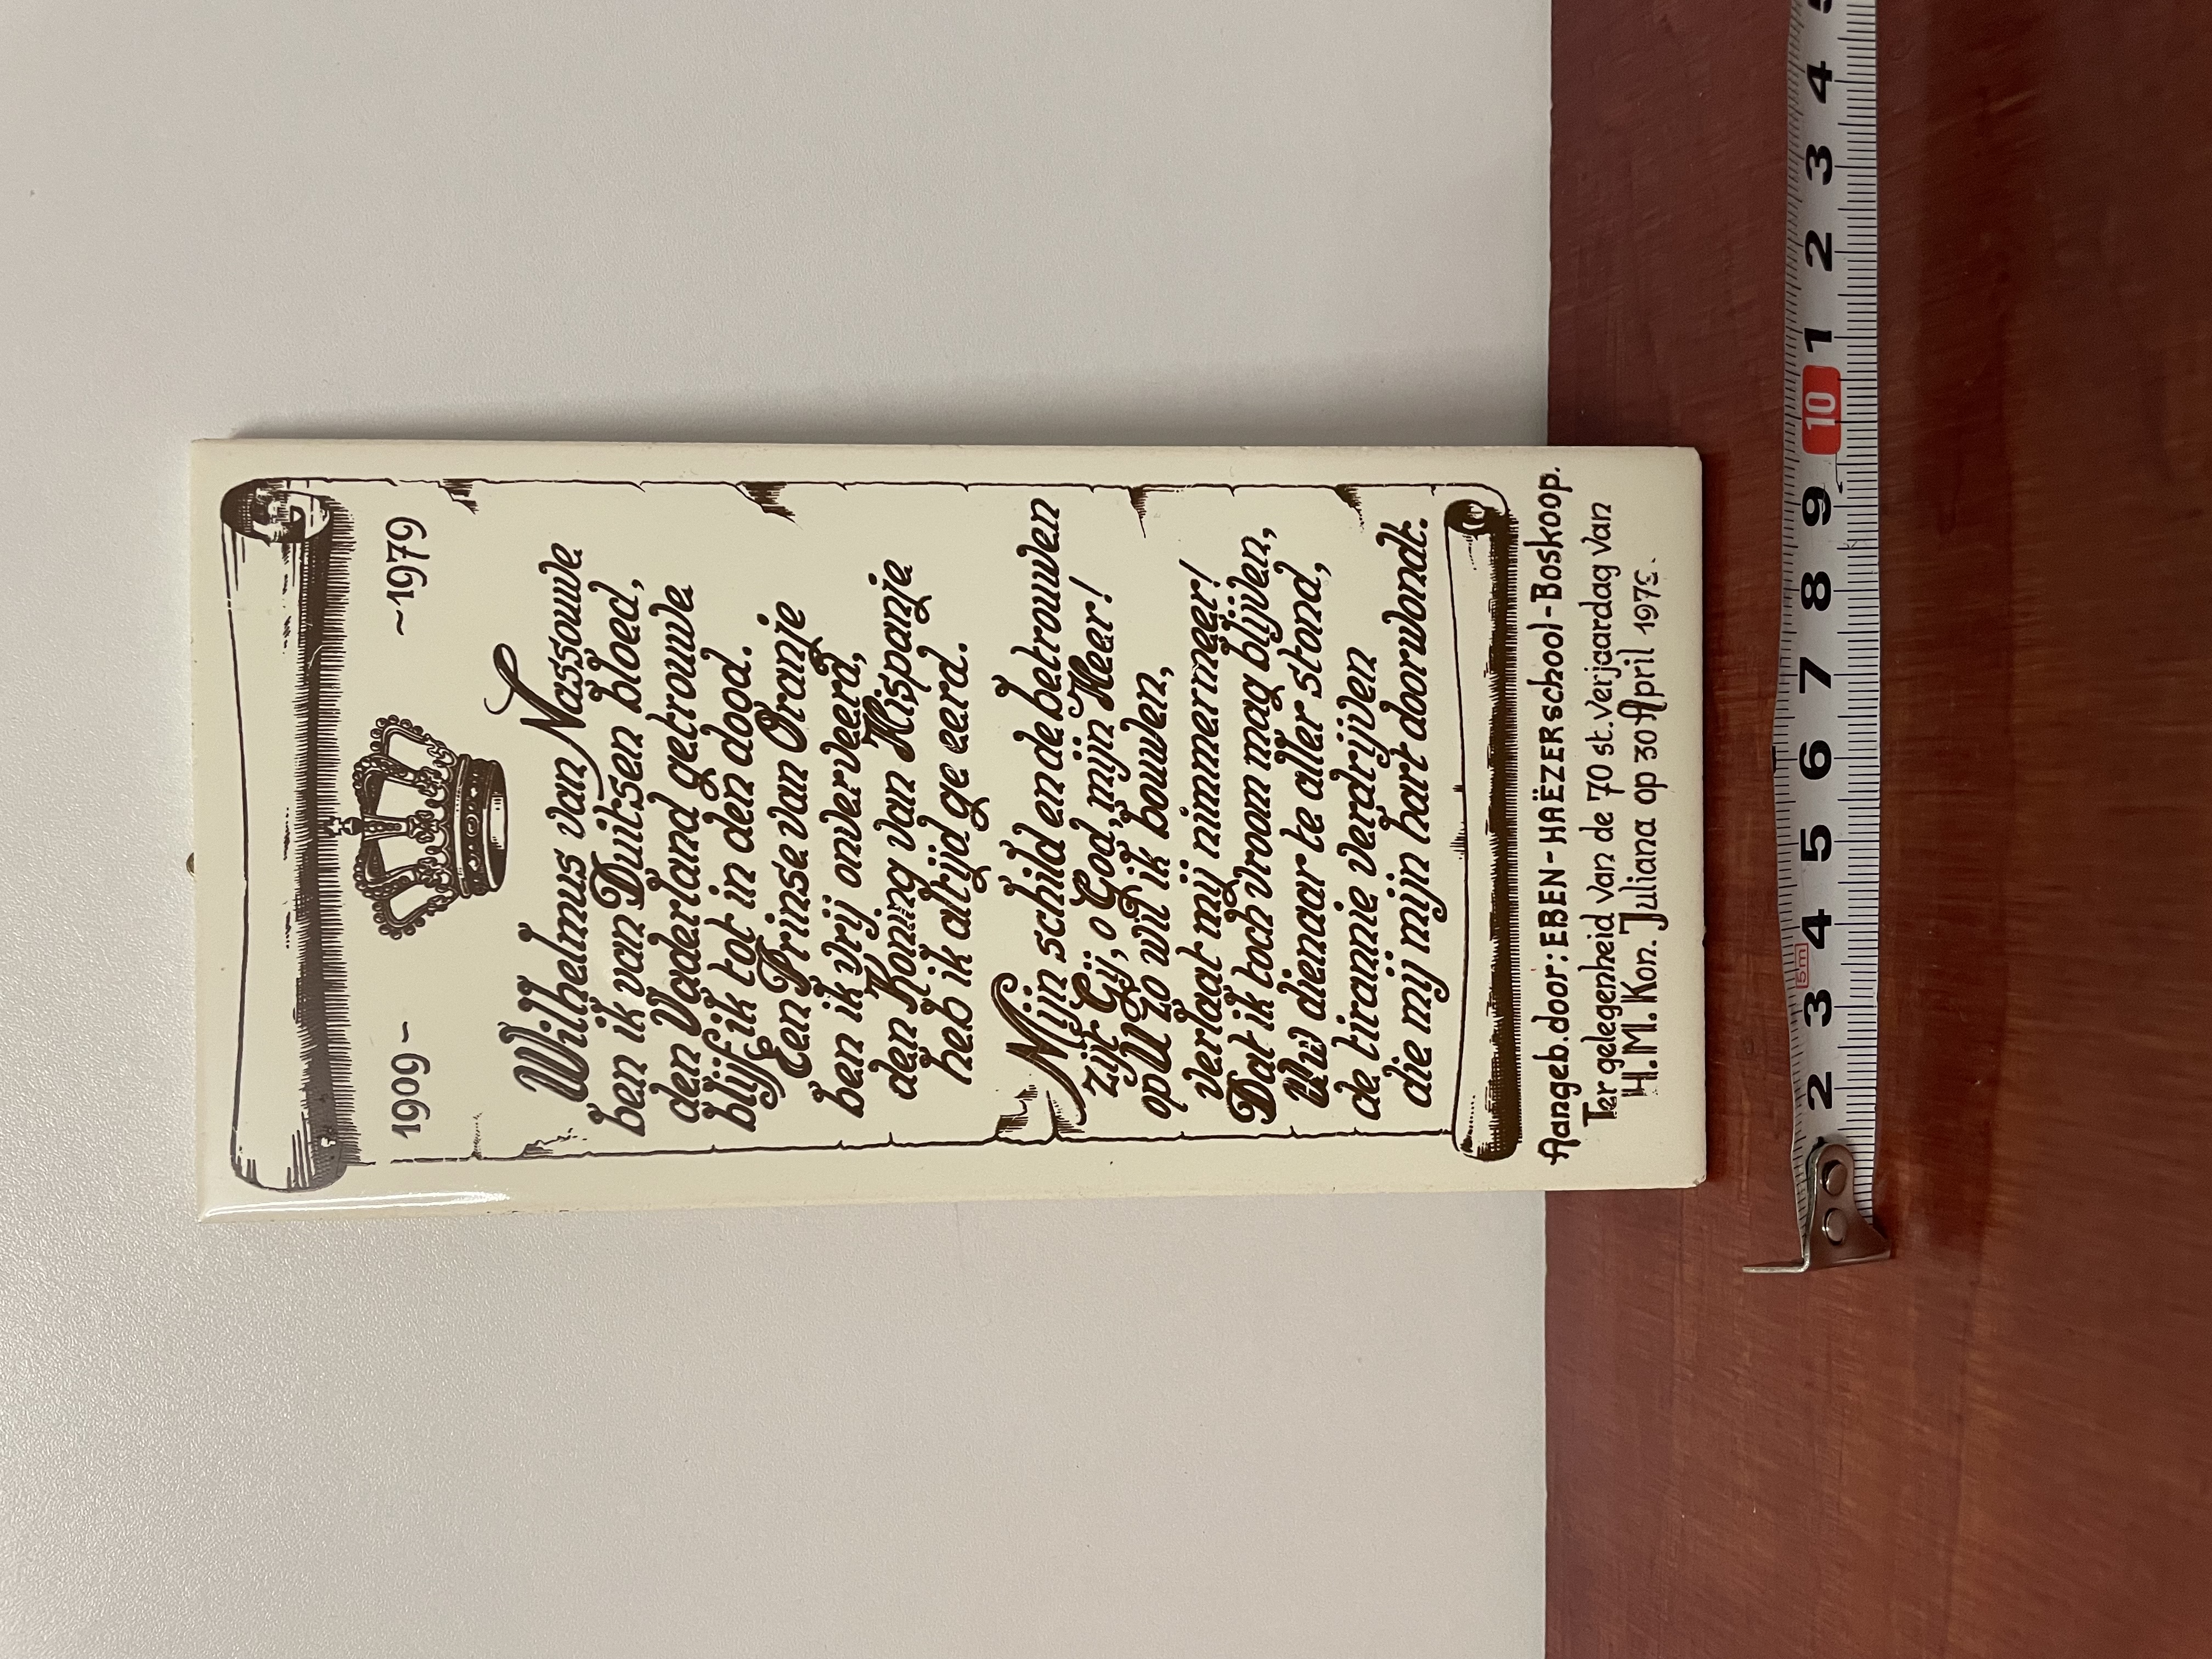 1909 ~ ~1979
Wilhelmus van Nassouwe
ben ik van Duitsen bloed,
den Vaderland getrouwe
blijf ik tot in den dood.
Een Prinse van Oranje
ben ik vrij onverveerd,
den Koning van Hispanje
heb ik altijd ge eerd.
Mijn schild ende betrouwen
zijt Gij, o God, mijn Heer!
op U zo wil ik bouwen,
verlaat mij nimmermeer!
Dat ik toch vroom mag blijven,
Uw dienaar te aller stond,
de tirannie verdrijven
die mij mijn hart doorwondt.
Aangeb. door: EBEN-HAËZER school - Boskoop.
Ter gelegenheid van de 70 st. verjaardag van
H. M. Kon. Juliana op 30 April
2 3 4 5 6 7 8 9 10 1 2 3 4 5
5m